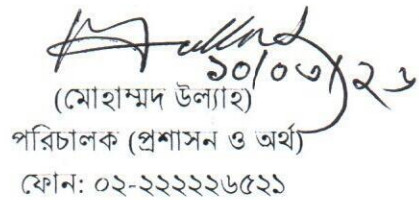 ১০/০৩/২৬
(মোহাম্মদ উল্যাহ)
পরিচালক (প্রশাসন ও অর্থ)
ফোন: ০২-২২২২২৬৫২১